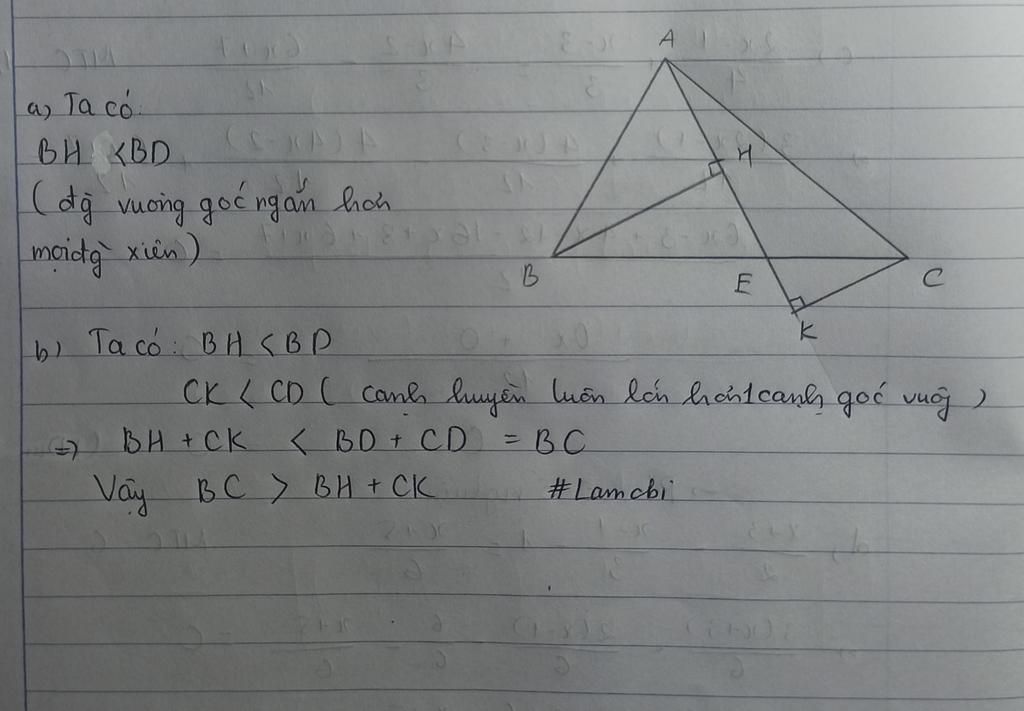 a) Ta có:
BH < BD
(đg vuông góc ngắn hơn
mọi đg xiên)
A
H
B
E
C
K
b) Ta có: BH < BD
CK < CD ( cạnh huyền luôn lớn hơn 1 cạnh góc vuôg )
=> BH + CK < BD + CD = BC
Vậy BC > BH + CK #Lamchi